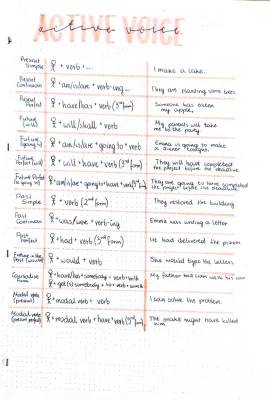 ACTIVE VOICE
active voice
Present Simple + verb + ... I make a cake.
Present Continuous + am/is/are + verb-ing... They are planting some trees.
Present Perfect + have/has + verb (3rd form) Someone has eaten my apple.
Future (will) + will/shall + verb My parents will take me to the party.
Future (going to) + am/is/are + going to + verb Emma is going to make a dinner tonight.
Future Perfect (will) + will + have + verb (3rd form) They will have completed the project before the deadline.
Future Perfect (be going to) + am/is/are + going to + have + verb (3rd form) They are going to have completed the project before the deadline.
Past Simple + verb (2nd form) They restored the building.
Past Continuous + was/were + verb-ing Emma was writing a letter.
Past Perfect + had + verb (3rd form) He had delivered the pizzas.
Future in the Past (would) + would + verb She would type the letters.
Causative + have/has + somebody + verb
+ get(s) somebody + to + verb My father had Liam wash his car.
Modal verbs (present) + modal verb + verb I can solve the problem.
Modal verbs (present perfect) + modal verb + have + verb (3rd form) The snake might have killed him.